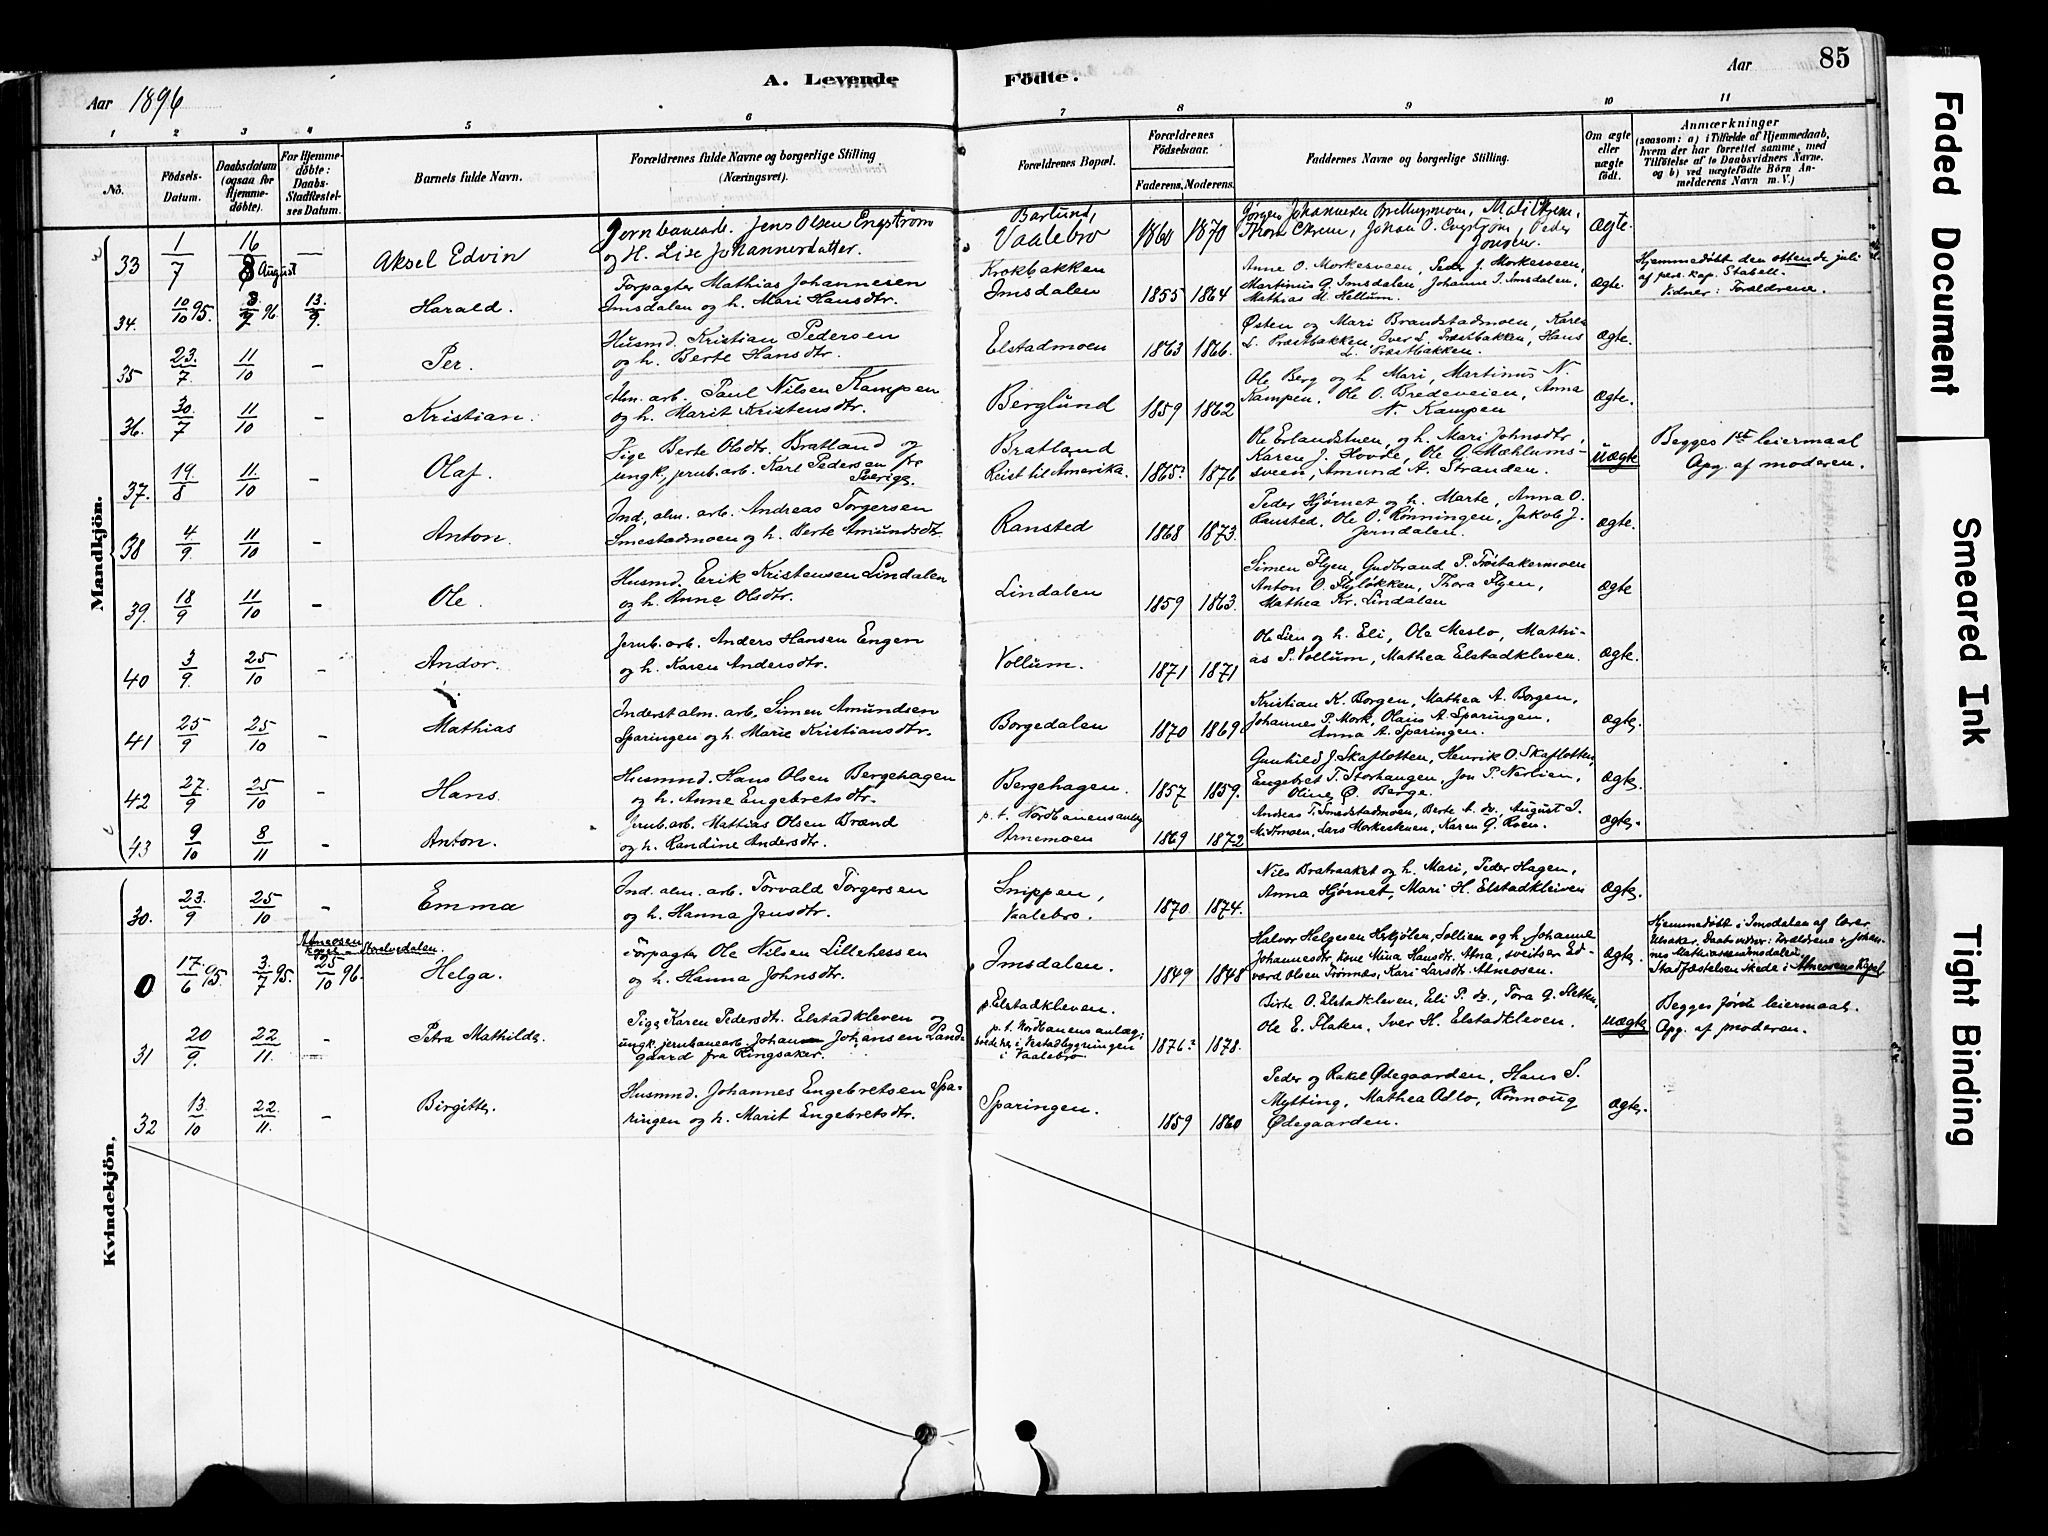 85
A. Levende Födte.
Aar 1896
Aar
1 2 3 4 5 6 7 8 9 10 11
No.
Födsels-Datum.
Daabsdatum (ogsaa for Hjemme-döbte).
For Hjemme-döbte: Daabs-Stadfæstel-ses Datum.
Barnets fulde Navn.
Forældrenes fulde Navne og borgerlige Stilling (Næringsvei).
Forældrenes Bopæl.
Forældrenes Födselsaar.
Faderens. Moderens.
Faddernes Navne og borgerlige Stilling.
Om ægte eller uægte födt.
Anmærkninger
(saasom: a) i Tilfælde af Hjemmedaab,
hvem der har forrettet samme, med
Tilföielse af to Daabsvidners Navne.
og b) ved uægtefödte Börn An-
melderens Navn m. V.)
Mandkjön.
33 1/7 16/8 August — Aksel Edvin
Jernbanearb. Jens Olsen Engström
og H. Lise Johannesdatter.
Barlund,
Vaalebro
1860 1870
Johan O. Engström Peder
Ægte.
34. 10/10 95. 3/7 96. 13/9. Harald.
Forpagter Mathias Johannesen
Imsdalen og h. Mari Hansdtr.
Krokbakken
Imsdalen
1855 1864
Anne O. Morkesveen, Peder J. Morkesveen,
Martinus G. Imsdalen, Johanne J. Imsdalen,
Mathias M. Hellum.
Ægte.
Hjemmedöbt den ottende juli
af pers. kap. Staksett.
Vidner: Forældrene.
35 23./7 11/10 - Per.
Husmd. Kristian Pedersen
og h. Berte Hansdtr.
Elstadmoen
1863 1866.
Østen og Mari Brandstadmoen, Karen
L. Præstbakken, Iver L. Præstbakken, Hans
L. Præstbakken.
Ægte.
36. 30./7 11/10 - Kristian.
Alm. arb. Paul Nilsen Kampen
og h. Marit Kristensdtr.
Berglund
1859 1862
Ole Berg og h Mari, Martinus N.
Kampen, Ole O. Bredeveien, Anna
N. Kampen
Ægte.
37. 19./8 11./10 - Olaf.
Pige Berte Olsdtr. Bratland og
ungk., jernb. arb. Karl Pedersen fra
Sverige.
Bratland
Reist til Amerika.
1865? 1876
Ole Erlandstuen, og h. Mari Johnsdtr,
Karen J. Hovde, Ole O. Mæhlums-
sveen, Amund A. Stranden.
Uægte
Begges 1ste leiermaal
Opg. af moderen.
38 4/9. 11/10 - Anton.
Ind., alm. arb. Andreas Torgersen
Smestadmoen og h. Berte Amundsdtr.
Ransted
1868 1873.
Peder Hjørnet og h. Marte, Anna O.
Ransted, Ole O. Rønningen, Jakob J.
Jerndalen.
Ægte.
39. 18/9 11/10 - Ole.
Husmd. Erik Kristensen Lindalen
og h. Anne Olsdtr.
Lindalen
1859 1863.
Simen Flyen, Gudbrand P. Frøisakermoen
Anton O. Flyløkken, Thora Flyen,
Mathea Kr. Lindalen
Ægte
40 3/9. 25/10 - Andor.
Jernb. arb. Anders Hansen Engen
og h. Karen Andersdtr.
Vollum.
1871 1871
Ole Lien og h. Eli, Ole Meslo, Mathi-
as P. Vollum, Mathea Elstadkleven.
Ægte.
41 25/9 25/10 - Mathias
Inderst alm. arb. Simen Amundsen
Sparingen og h. Marie Kristiansdtr.
Borgedalen
1870 1869
Kristian K. Borgen, Mathea A. Borgen,
Johannes P. Mork, Olaus A. Sparingen,
Anna A. Sparingen.
Ægte.
42 27./9 25/10 - Hans.
Husmnd. Hans Olsen Bergehagen
og h. Anne Engebretsdtr.
Bergehagen.
1857 1859.
Gunhild J. Skafletten, Henrik O. Skafletten,
Engebret T. Storhaugen, Jon P. Nerlien,
Oline Ø. Berge.
Ægte.
43 9/10 8/11 - Anton.
Jernb. arb. Mathias Olsen Brænd
og h. Randine Andersdtr.
p. t. Nordbanens anlæg
Arnemoen
1869 1872
Andreas T. Smedstadmoen, Berte A. do, August J.
Midtmoen, Lars Morkestuen, Karen G. Roen.
Ægte.
Kvindekjön.
30. 23./9 25/10 - Emma
Ind. alm. arb. Torvald Torgersen
og h. Hanna Jensdtr.
Snippen,
Vaalebro.
1870 1874.
Nils Bratraaket og h. Mari, Peder Hagen,
Anna Hjørnet, Mari H. Elstadkleiven
Ægte.
Atneosen kapel Storelvedalen.
0 17./6 95. 3/7 95. 25/10 96 Helga.
Forpagter Ole Nilsen Lillehessen
og h. Hanna Johnsdtr.
Imsdalen.
1849 1848
Halvor Helgesen Hirkjølen, Sollien og h. Johanne
Johannesdtr. kone Mina Hansdtr. Atna, sveitser Ed-
vard Olsen Trønnæs, Kari Larsdtr. Atneosen.
Ægte.
Hjemmedöbt i Imsdalen af lærer
Ulsaker. Daabsvidner: Forældrene, Johan-
nes Mathiassen Imsdalen,
Stadfæstelsen skede i Atneosens Kapel
31 20/9. 22/11. - Petra Mathilde.
Pige Karen Pedersdtr. Elstadkleven og
ungk. jernbanearb. Johan Johansen Land-
gaard fra Ringsaker.
p. Elstadkleven.
p. t. Nordbanens anlæg;
boede her i Vestadbygningen
i Vaalebro
1876? 1878.
Birte O. Elstadkleven, Eli P. do., Tora G. Sletten,
Ole E. Flaten, Iver H. Elstadkleven.
Uægte
Begges første leiermaal.
Opg. af moderen.
32 13/10 22./11. - Birgitte.
Husmnd. Johannes Engebretsen Spa-
ringen og h. Marit Engebretsdtr.
Sparingen.
1859 1860
Peder og Rakel Ødegaarden, Hans S.
Mytting, Mathea Odlo, Rønnoug
Ødegaarden.
Ægte.
Faded Document
Smeared Ink
Tight Binding